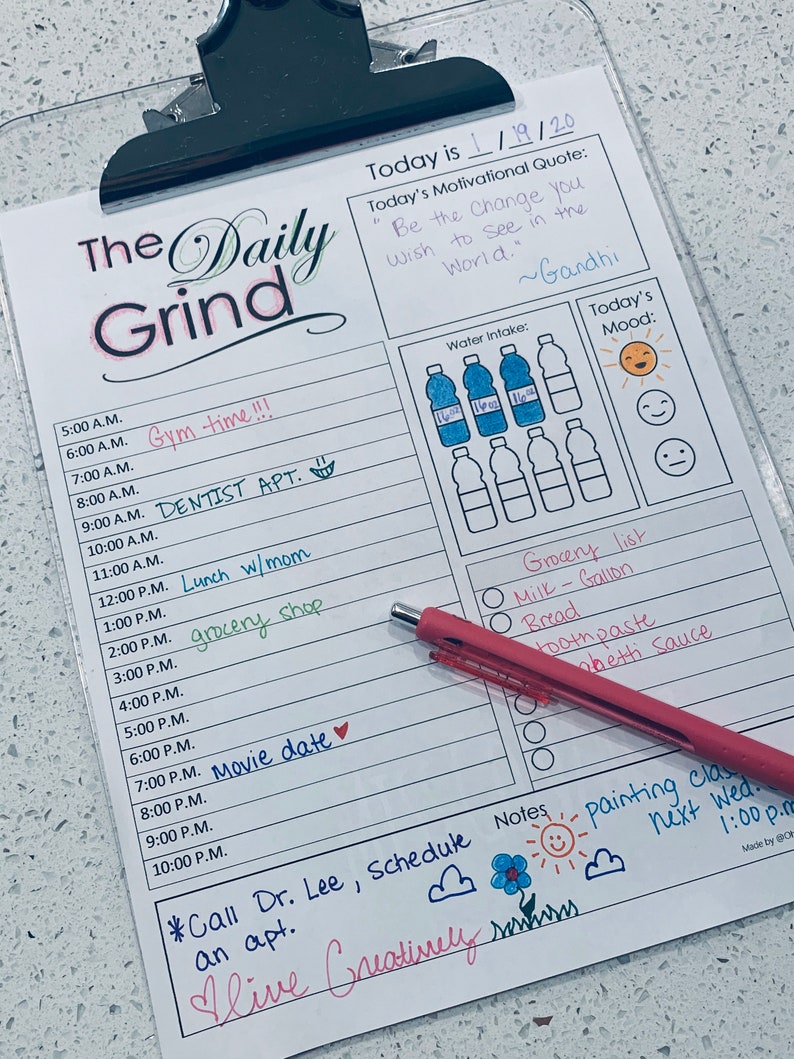 Today is 1/19/20
The Daily
Grind
Today's Motivational Quote:
"Be the Change you
wish to see in the
World."
~Gandhi
Water Intake:
16oz 16oz 16oz
Today's
Mood:
5:00 A.M.
6:00 A.M. Gym time!!!
7:00 A.M.
8:00 A.M.
9:00 A.M. DENTIST APT.
10:00 A.M.
11:00 A.M.
12:00 P.M. Lunch w/mom
1:00 P.M.
2:00 P.M. grocery shop
3:00 P.M.
4:00 P.M.
5:00 P.M.
6:00 P.M.
7:00 P.M. Movie date
8:00 P.M.
9:00 P.M.
10:00 P.M.
Grocery list
Milk - Gallon
Bread
toothpaste
sauce
Notes
*Call Dr. Lee, schedule
an apt.
live Creatively
painting
next Wed.
1:00 p.m
Made by